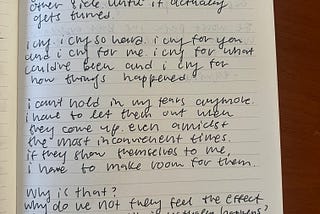 other side until it actually
gets turned.
i cry. i cry so hard. i cry for you
and i cry for me. i cry for what
could've been and i cry for
how things happened.
i can't hold in my tears anymore.
i have to let them out when
they come up. even amidst
the most inconvenient times.
if they show themselves to me,
i have to make room for them.
why is that?
why do we not they feel the effect
happens?